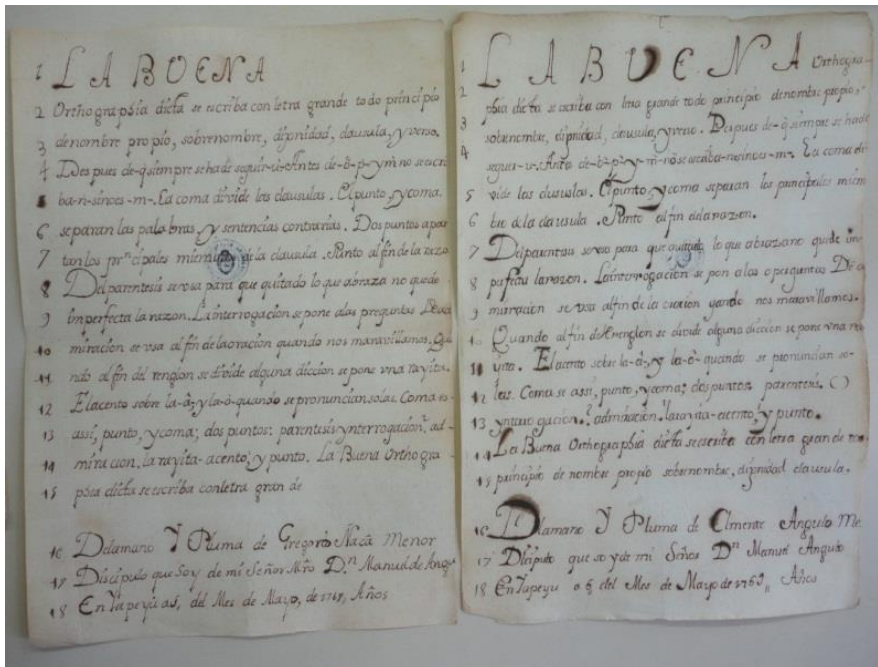 1 LA BUENA
2 Orthographia dicta se escriba con letra grande todo principio
3 de nombre propio, sobrenombre, dignidad, clausula, y verso.
4 Despues de-q̃ siempre se ha de seguir-u-Antes de-b-p-y m no se escri
5 ba-n-sino es-m-. La coma divide las clausulas. El punto, y coma.
6 separan las palabras, y sentencias contrarias. Dos puntos apar
7 tan los prncipales miembros de la clausula. Punto al fin de la razo
8 Del parentesis se vsa para que quitado lo que abraza no quede
9 imperfecta la razon. La interrogacion se pone a las preguntas
10 miracion se vsa al fin de la oracion quando nos maravillamos. Qua
11 ndo al fin del renglon se divide alguna diccion se pone vna rayita.
12 El acento sobre la-à-y la-ò-quando se pronuncian solas. Coma es
13 assi, punto, y coma; dos puntos: parentesis ynterrogacion? ad-
14 miracion. la rayita-acento, y punto. La Buena Orthogra-
15 phia dicta se escriba con letra gran de
16 De la mano Y Pluma de Gregorio Menor
17 Discipulo que Soy de mi Señor Mro Dn. Manuel de Angu
18 En Yapeyu a 5, del Mes de Mayo, de Años
1 LA BUENA Orthogra-
2 phia dicta se escriba con letra grande todo principio de nombre propio,
3 sobrenombre, dignidad, clausula, y verso. Despues de-q̃ siempre se ha de
4 seguir-u-Antes de-b-p-y-m-no se escriba-n-sino es-m-. La coma di
5 vide las clusulas. El punto, y coma separan los principales miem
6 bro de la clausula. Punto al fin de la razon.
7 Del parentesis se vso para que quitado lo que abrazano quede im
8 perfecta la razon. La interrogacion se pon a las
9 miracion se vsa al fin de la oracion nos maravillamos.
10 Quando al fin del renglon se divide alguna diccion se pone vna ra
11 yita. El acento sobre la-à-y la-ò-quando se pronuncian so-
12 las. Coma se assi, punto, y coma; dos puntos: parentesis. ()
13 ynterogacion? admiracion. la rayita-acento, y punto.
14 La Buena Orthographia dicta se escriba con letra gran de
15 principio de nombre propio sobrenombre, dignidad clausula,
16 De la mano Y Pluma de Clmente Angulo Me
17 que so y de mi Señor Dn Manuel Angulo
18 En Yapeyu a 6 del Mes de Mayo de Años